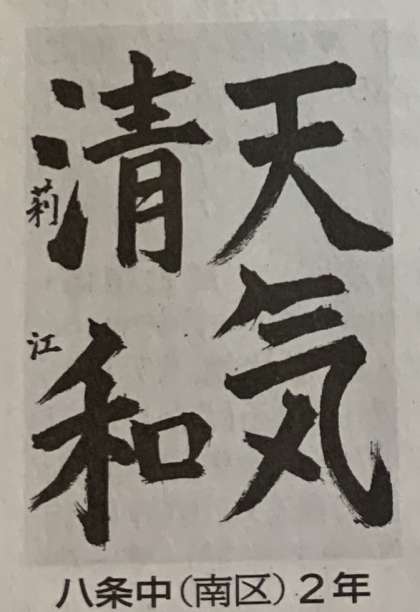 天気
清和
莉江
八条中(南区)2年